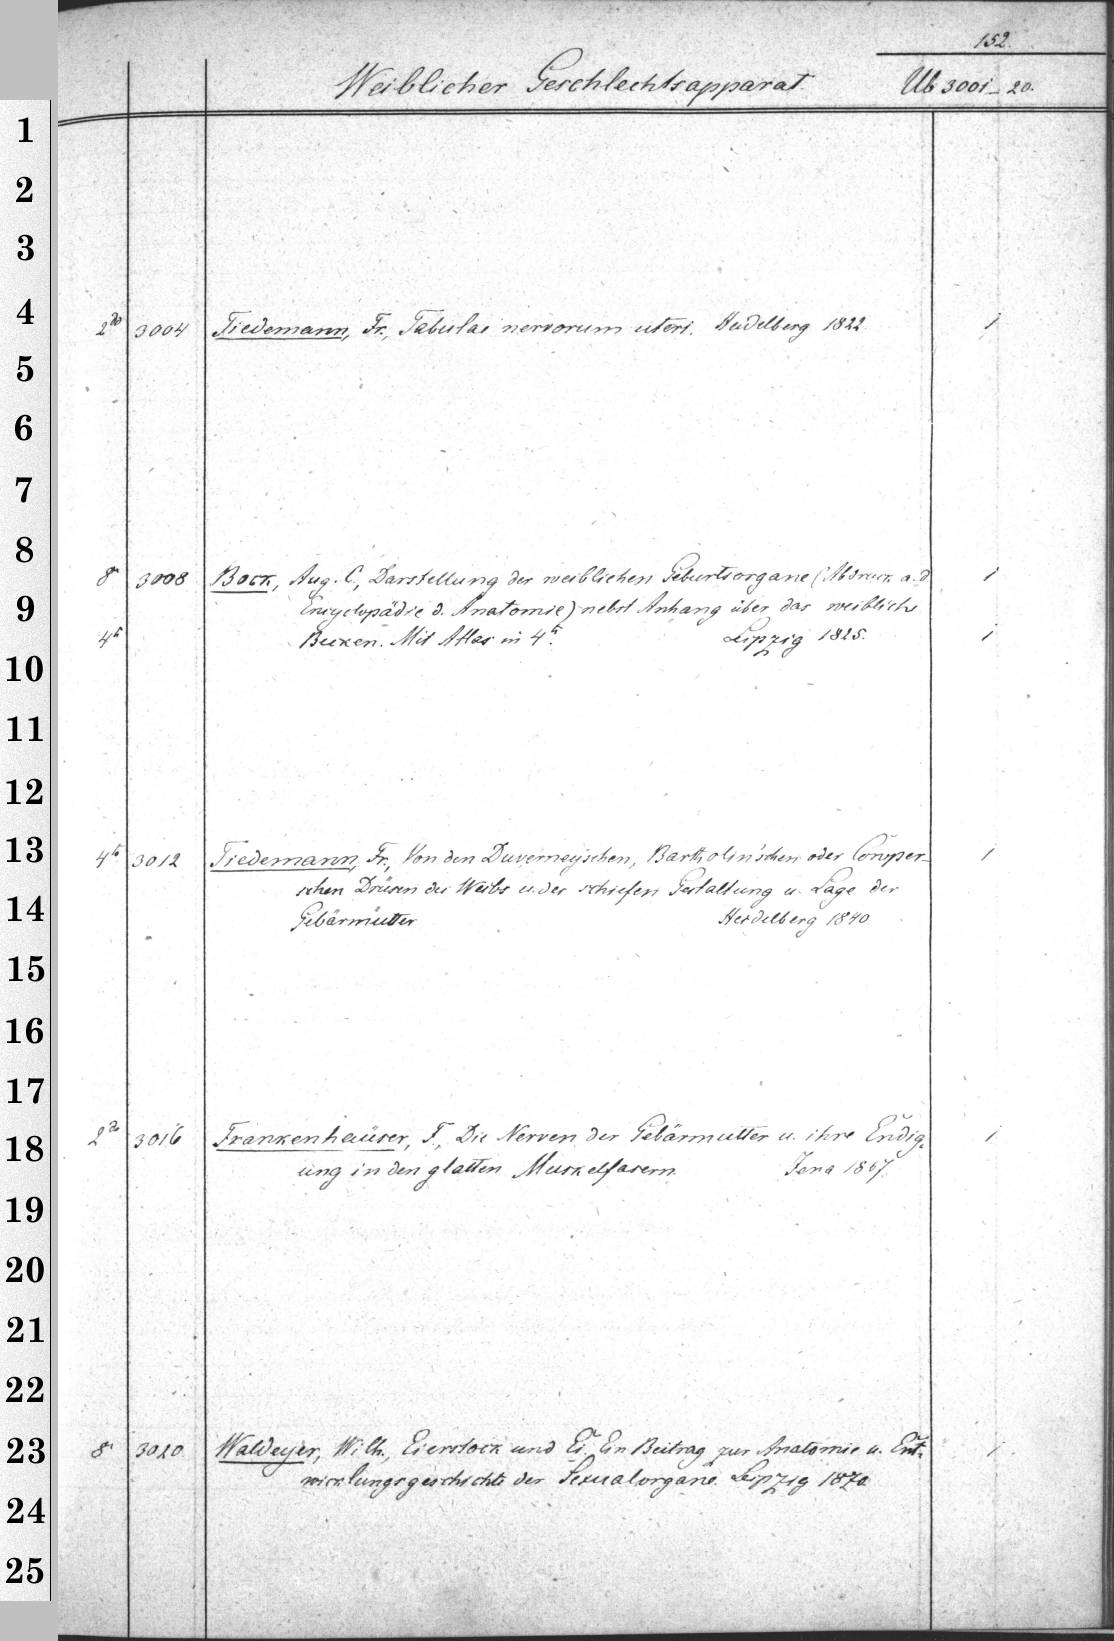 152.
Weiblicher Geschlechtsapparat. Ub 3001–20.
1
2
3
4
2do 3004 Tiedemann, Fr., Tabulae nervorum uteri. Heidelberg 1822. 1
5
6
7
8
8o 3008 Bock, Aug. C., Darstellung der weiblichen Geburtsorgane (Abdruck a. d. 1
9
Encyclopädie d. Anatomie) nebst Anhang über das weibliche
4to Becken. Mit Atlas in 4to. Leipzig 1825. 1
10
11
12
13
4to 3012 Tiedemann, Fr., Von den Duverney'schen, Bartholin'schen oder Cowper- 1
schen Drüsen des Weibs u. der schiefen Gestaltung u. Lage der
14
Gebärmutter Heidelberg 1840
15
16
17
18
2do 3016 Frankenhaüser, F., Die Nerven der Gebärmutter u. ihre Endig- 1
ung in den glatten Muskelfasern. Jena 1867.
19
20
21
22
23
8o 3020 Waldeyer, Wilh., Eierstock und Ei. Ein Beitrag zur Anatomie u. Ent- 1
wicklungsgeschichte der Sexualorgane. Leipzig 1870
24
25